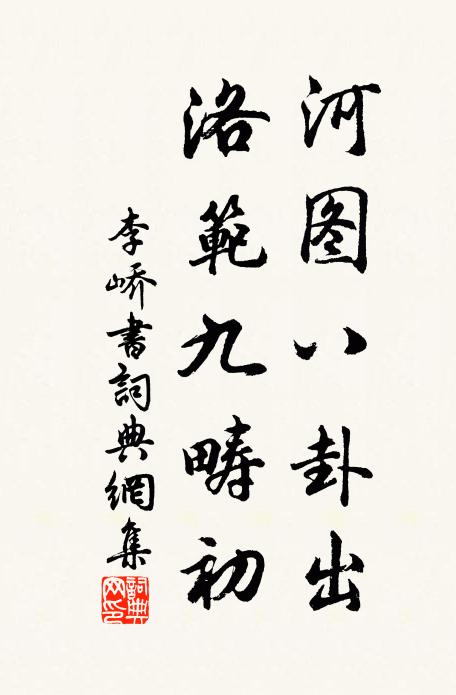 河图八卦出
洛範九疇初
李嶠書詞典網集
詞典網印